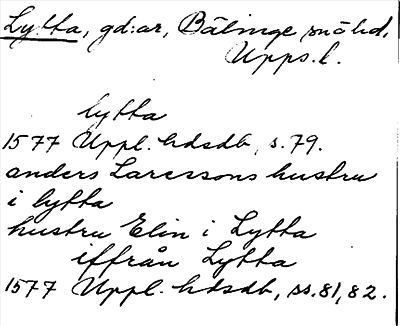 Lytta, gd:ar, Bälinge snöhd,
Upps.l.
lytta
1577 Uppl. hdsdb, s.79.
anders Laressons hustru
i lytta
hustru Elin i Lytta
iffrån Lytta
1577 Uppl. hdsdb, ss.81,82.